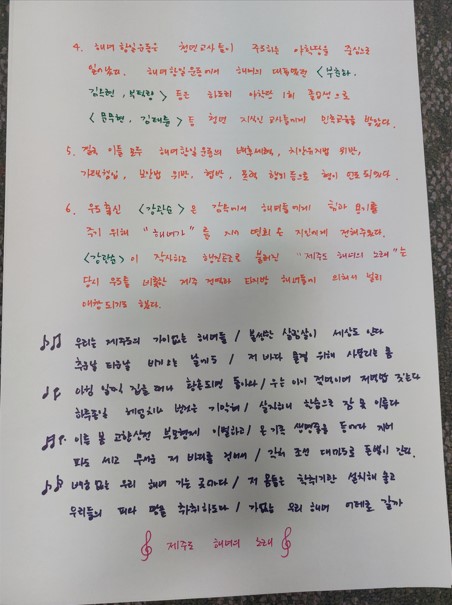 4. 해녀 항일운동은 청년교사들이 주도하는 야학당을 중심으로
일어났다. 해녀 항일 운동에서 해녀의 대표였던 <부춘화,
김옥련, 부덕량> 등은 하도리 야학당 1회 졸업생으로
<문무현, 김태륜> 등 청년 지식인 교사들에게 민족교육을 받았다.
5. 결국 이들 모두 해녀 항일운동의 배후세력, 치안유지법 위반,
가택침입, 보안법 위반, 협박, 폭력 행위 등으로 형이 언도되었다.
6. 우도 출신 <강관순> 은 감옥에서 해녀들에게 힘과 용기를
주기 위해 "해녀가" 를 지어 면회 온 지인에게 전해주었다.
<강관순> 이 작사하고 행진곡으로 불려진 "제주도 해녀의 노래"는
당시 우도를 비롯한 제주 전역과 타지방 해녀들에 의해서 널리
애창되기도 했다.
우리는 제주도의 가이없는 해녀들 / 불쌍한 살림살이 세상도 안다
추운날 더운날 비가 오는 날에도 / 저 바다 물결 위해 시달리는 몸
아침 일찍 집을 떠나 황혼되면 돌아와 / 우는 아이 젖먹이며 저녁밥 짓는다
하루종일 헤엄치나 번것은 기막혀 / 살자하니 한숨으로 잠 못 이룬다
이른 봄 고향산천 부모형제 이별하고 / 온 가족 생명줄을 등에다 지어
파도 세고 무서운 저 바다를 건너서 / 각처 조선 대마도로 돈벌이 간다.
배움 없는 우리 해녀 가는 곳마다 / 저 놈들은 착취기관 설치해 놓고
우리들의 피와 땀을 착취하도다 / 가엾은 우리 해녀 어데로 갈까
제주도 해녀의 노래